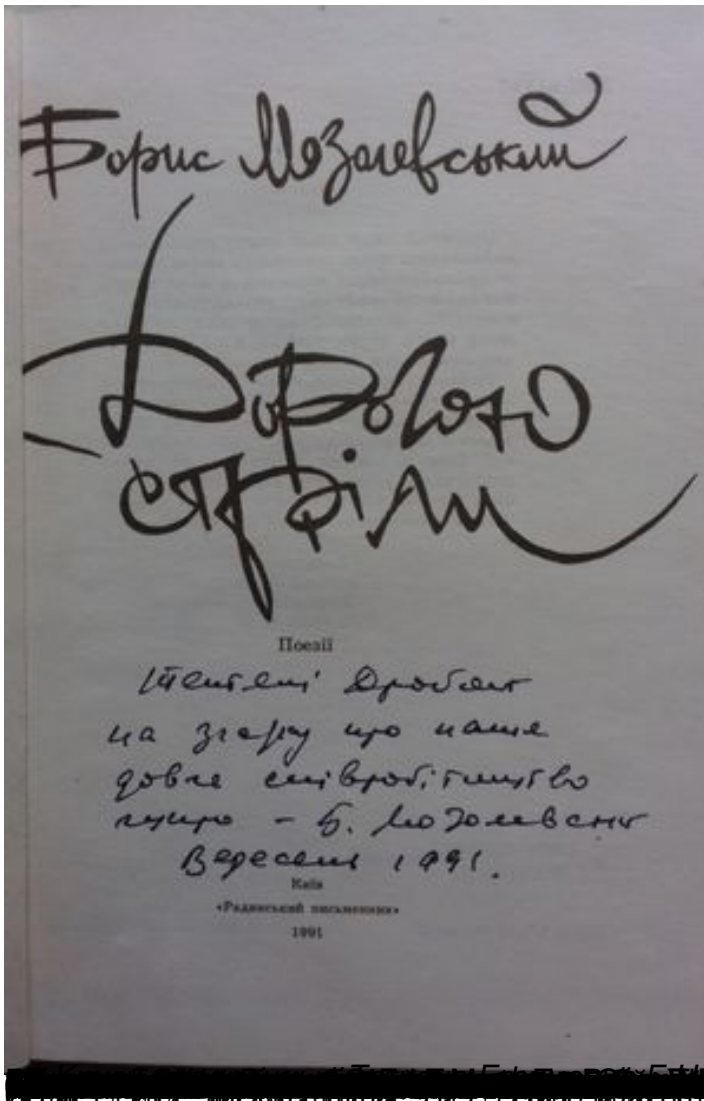 Борис Мозолевський
Дорогою
стріли
Поезії
Тетяні Дробяз
на згадку про наше
довге співробітництво
щиро – Б. Мозолевський
Вересень 1991.
Київ
«Радянський письменник»
1991